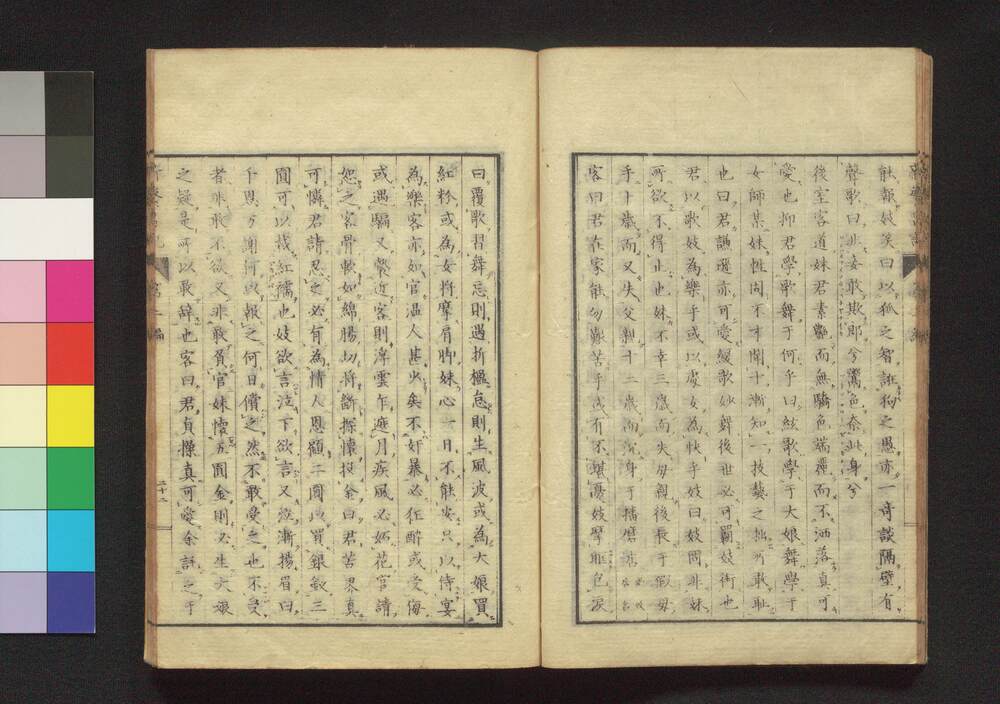 能報妓笑曰以狐之智誑狗之愚亦一奇談隔壁有
聲歌曰非妾敢欺郎兮鸞色奈此身兮
後室客道妹君素艷而無驕色端麗而不洒落真可
愛也抑君學歌舞于何乎曰絃歌學于大娘舞學于
女師某妹性固不才聞十漸知一技藝之拙所敢恥
也曰君謙遜亦可愛緩歌妙舞後世必可罰妓術也
君以歌妓為樂乎或以處女為快乎妓曰妓固非妹
所欲不得止也妹不幸三歲而失母親後長于假母
手十歲而又失父親十二歲而沉身于播磨
客曰君在家能勿艱苦乎或有不堪憂妓擧唯色淚
曰覆歌習舞忘則遇折檻怠則生風波或為大娘買
紅粉或為女將摩肩脚妹心一日不能安只以侍宴
為樂客亦如官溫人甚少矣不奸暴必狂醉或受侮
或遇騙又聚近客則渾雲乍遮月疾風必妬花官請
恕之客骨軟如綿腸切將斷探懷投金曰君苦界真
可憐君請忍之必有為情人恩顧二圓以買銀釵三
圓可以裁紅襦也妓欲言泣下欲言又泣漸揚眉曰
千恩万謝何以報之何日償之然不敢受之也不受
者非敢不欲又非敢負官妹懷五圓金則必生大娘
之疑是所以敢辞也客曰君貞操真可愛余詳之于
二十二